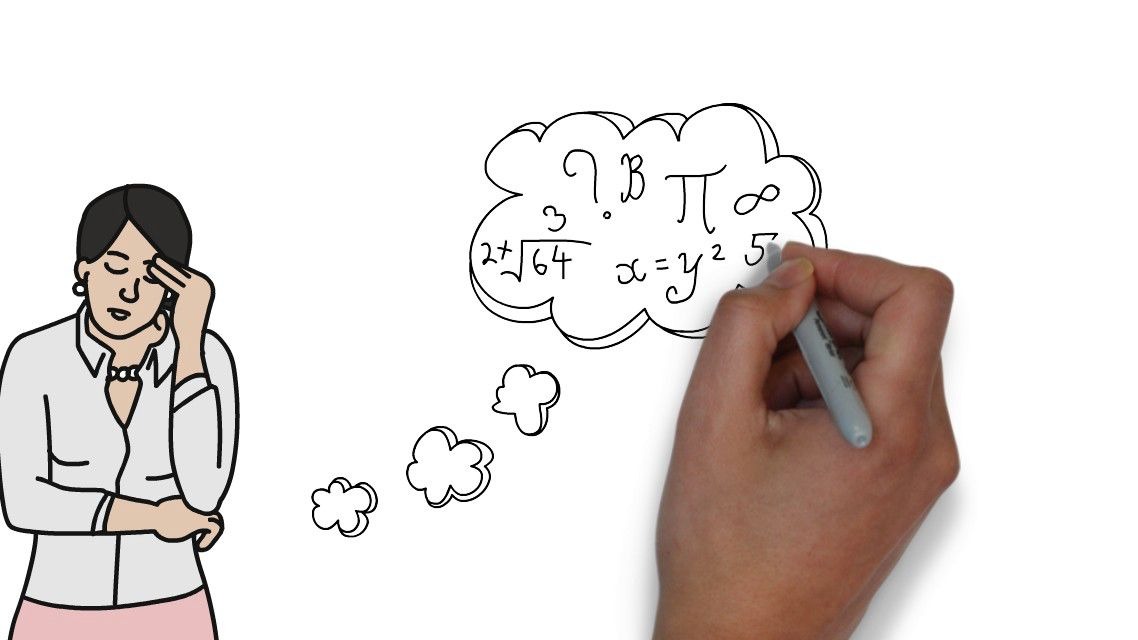 ? B π ∞
2+∛64 x=y² 5